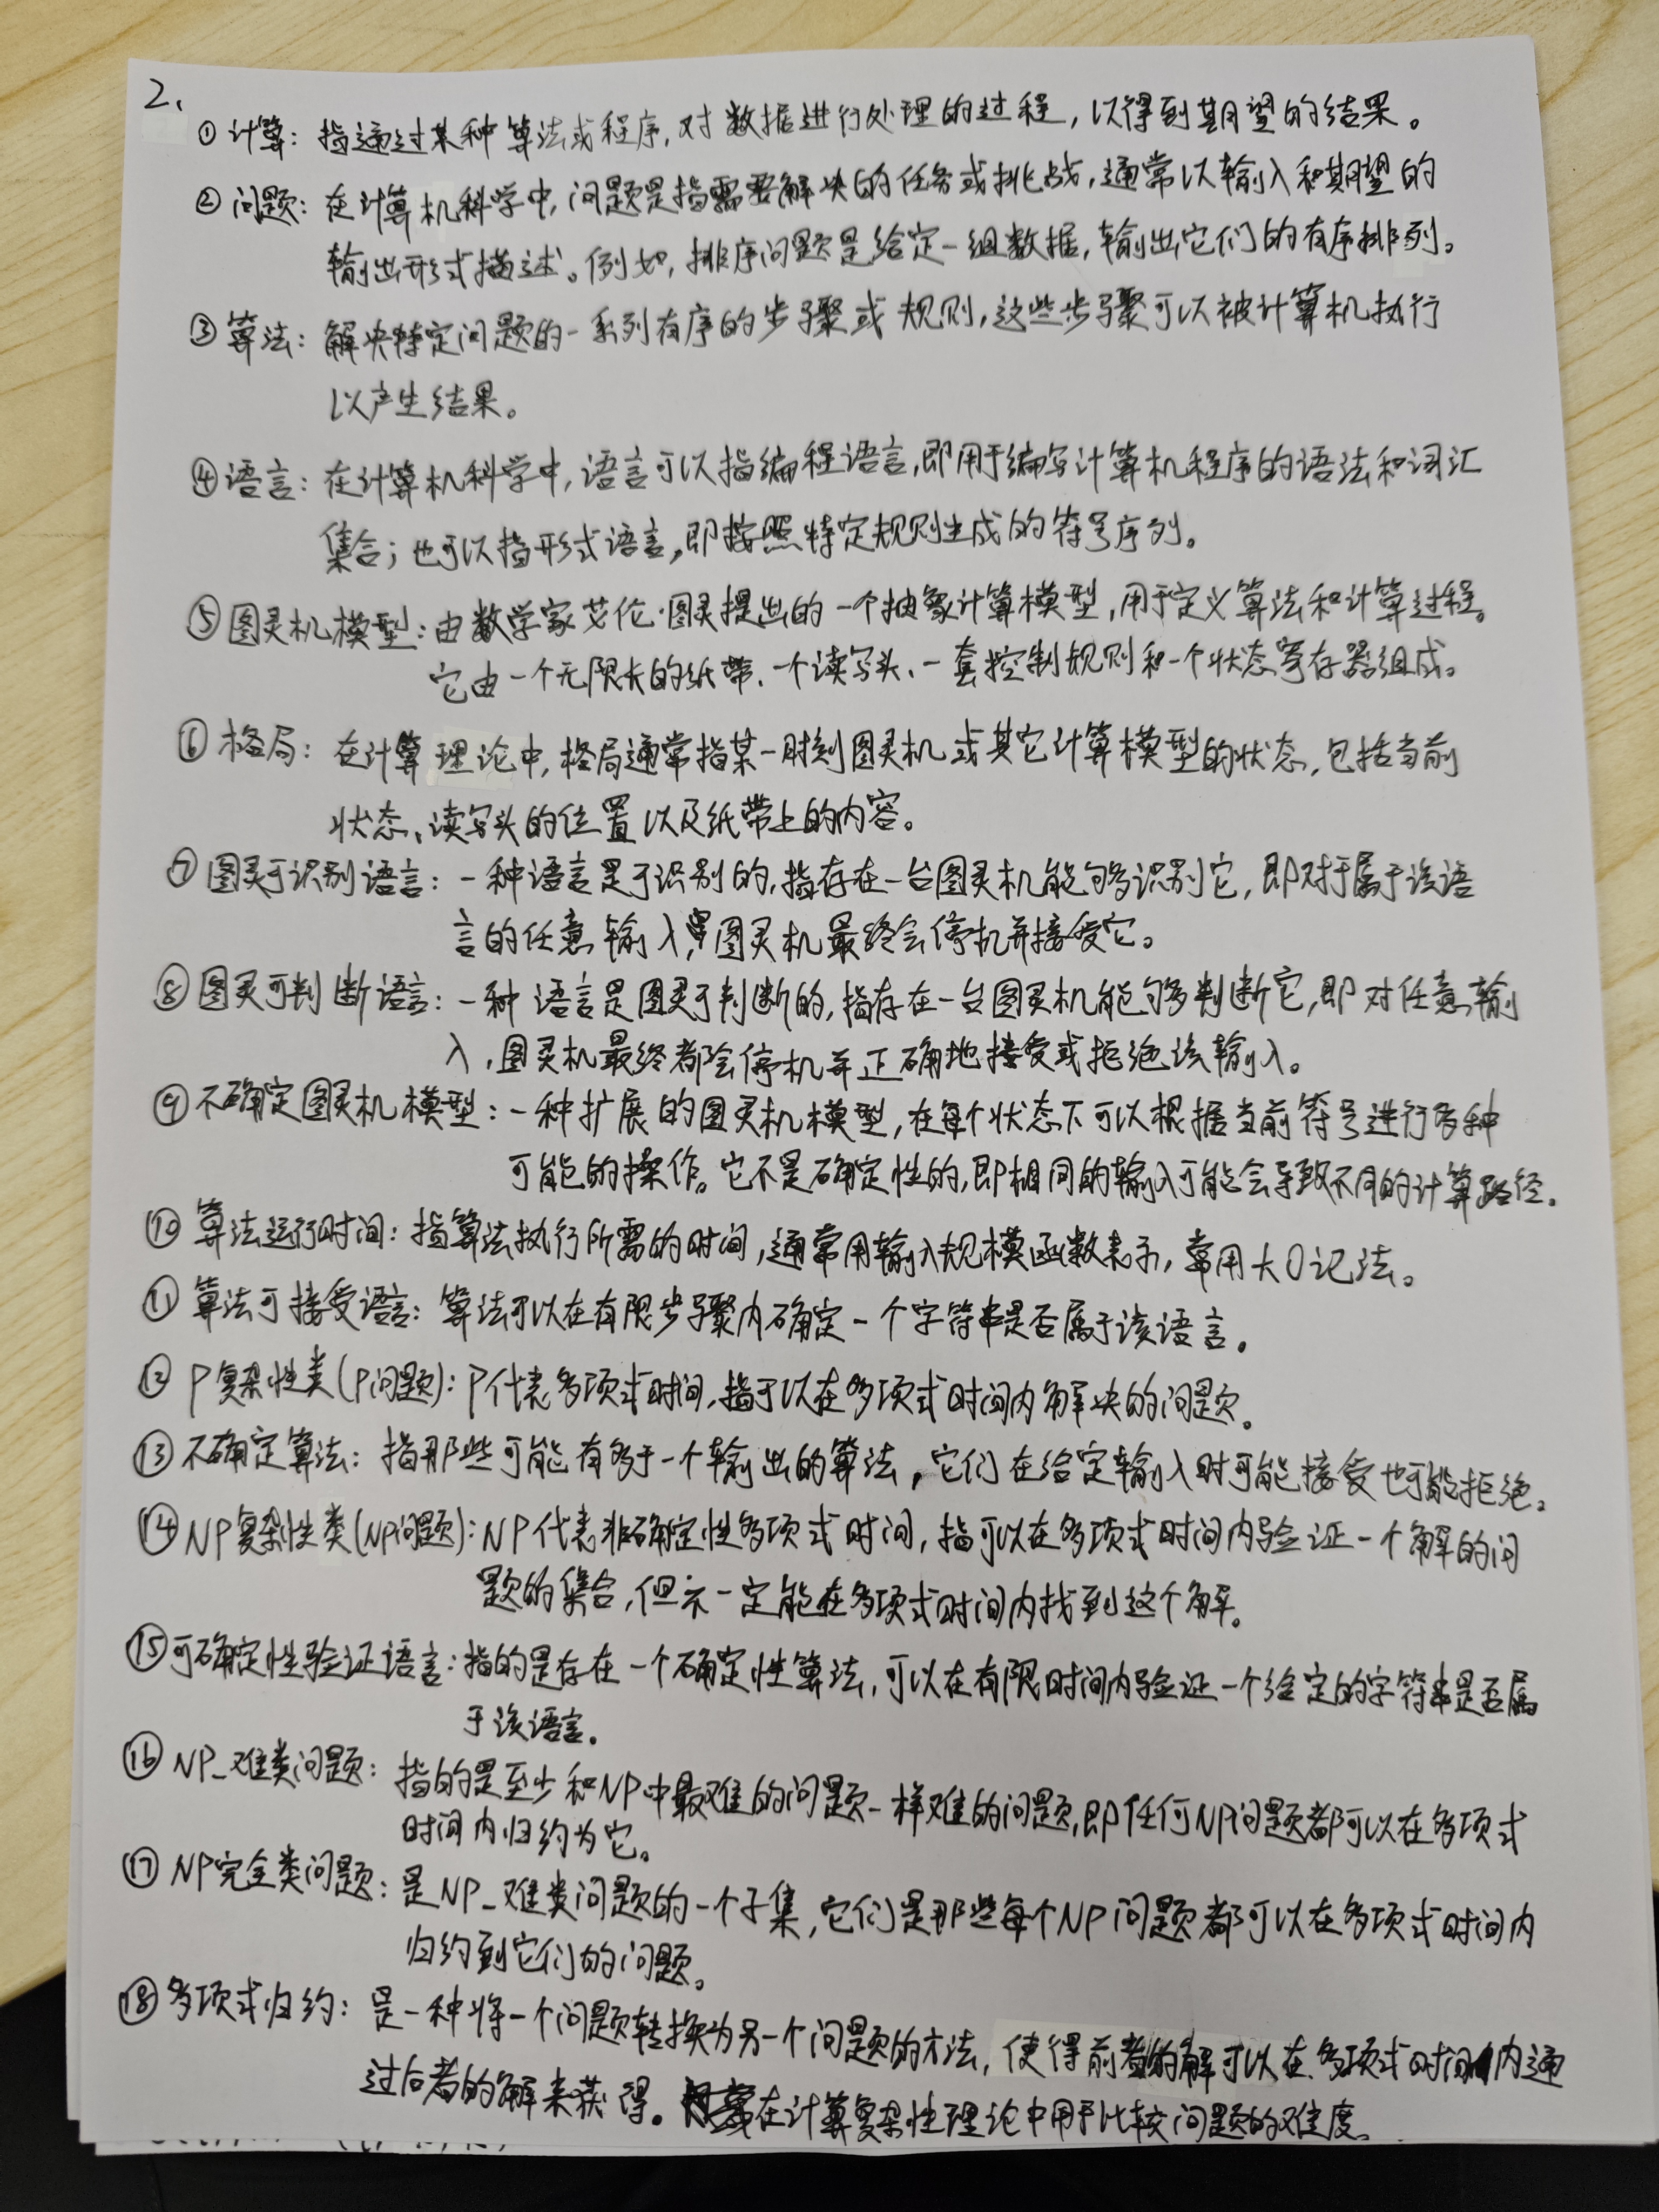 2.
① 计算：指通过某种算法或程序，对数据进行处理的过程，以得到期望的结果。
② 问题：在计算机科学中，问题是指需要解决的任务或挑战，通常以输入和期望的
输出形式描述。例如，排序问题是给定一组数据，输出它们的有序排列。
③ 算法：解决特定问题的一系列有序的步骤或规则，这些步骤可以被计算机执行
以产生结果。
④ 语言：在计算机科学中，语言可以指编程语言，即用于编写计算机程序的语法和词汇
集合；也可以指形式语言，即按照特定规则生成的符号序列。
⑤ 图灵机模型：由数学家艾伦·图灵提出的一个抽象计算模型，用于定义算法和计算过程。
它由一个无限长的纸带、一个读写头、一套控制规则和一个状态寄存器组成。
⑥ 格局：在计算理论中，格局通常指某一时刻图灵机或其它计算模型的状态，包括当前
状态、读写头的位置以及纸带上的内容。
⑦ 图灵可识别语言：一种语言是可识别的，指存在一台图灵机能够识别它，即对于属于该语
言的任意输入，图灵机最终会停机并接受它。
⑧ 图灵可判断语言：一种语言是图灵可判断的，指存在一台图灵机能够判断它，即对任意输
入，图灵机最终都会停机并正确地接受或拒绝该输入。
⑨ 不确定图灵机模型：一种扩展的图灵机模型，在每个状态下可以根据当前符号进行多种
可能的操作。它不是确定性的，即相同的输入可能会导致不同的计算路径。
⑩ 算法运行时间：指算法执行所需的时间，通常用输入规模函数表示，常用大O记法。
⑪ 算法可接受语言：算法可以在有限步骤内确定一个字符串是否属于该语言。
⑫ P复杂性类（P问题）：P代表多项式时间，指可以在多项式时间内解决的问题。
⑬ 不确定算法：指那些可能有多于一个输出的算法，它们在给定输入时可能接受也可能拒绝。
⑭ NP复杂性类（NP问题）：NP代表非确定性多项式时间，指可以在多项式时间内验证一个解的问
题的集合，但不一定能在多项式时间内找到这个解。
⑮ 可确定性验证语言：指的是存在一个确定性算法，可以在有限时间内验证一个给定的字符串是否属
于该语言。
⑯ NP_难类问题：指的是至少和NP中最难的问题一样难的问题，即任何NP问题都可以在多项式
时间内归约为它。
⑰ NP完全类问题：是NP_难类问题的一个子集，它们是那些每个NP问题都可以在多项式时间内
归约到它们的问题。
⑱ 多项式归约：是一种将一个问题转换为另一个问题的方法，使得前者的解可以在多项式时间内通
过后者的解来获得。常在计算复杂性理论中用于比较问题的难度。